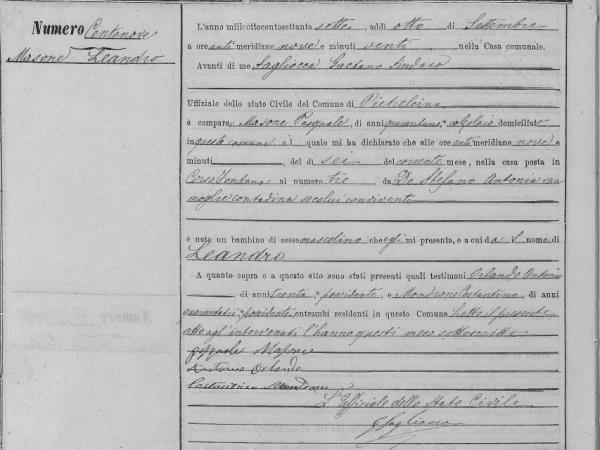 Numero Centonove
Masone Leandro
L'anno milleottocentosettanta sette, addì otto di Settembre
a ore antimeridiane nove e minuti venti, nella Casa comunale.
Avanti di me Sagliocca Gaetano Sindaco
Uffiziale dello stato Civile del Comune di Pietrelcina
è comparso Masone Pasquale, di anni quarantuno, domiciliato
in questo comune, il quale mi ha dichiarato che alle ore antimeridiane nove e
minuti, del dì sei del corrente mese, nella casa posta in
Corso Fontana al numero tre, da De Stefano Antonia sua
moglie contadina secolui convivente
è nato un bambino di sesso maschile che egli mi presenta, e a cui dà il nome di
Leandro
A quanto sopra e a questo atto sono stati presenti quali testimoni Orlando Antonio
, di anni trenta, possidente, e Mandrone Costantino, di anni
possidenti, entrambi residenti in questo Comune. Letto il presente
atto agl'intervenuti l'hanno questi meco sottoscritto
Pasquale Masone
Antonio Orlando
Costantino Mandrone
L'Uffiziale dello Stato Civile
G Sagliocca